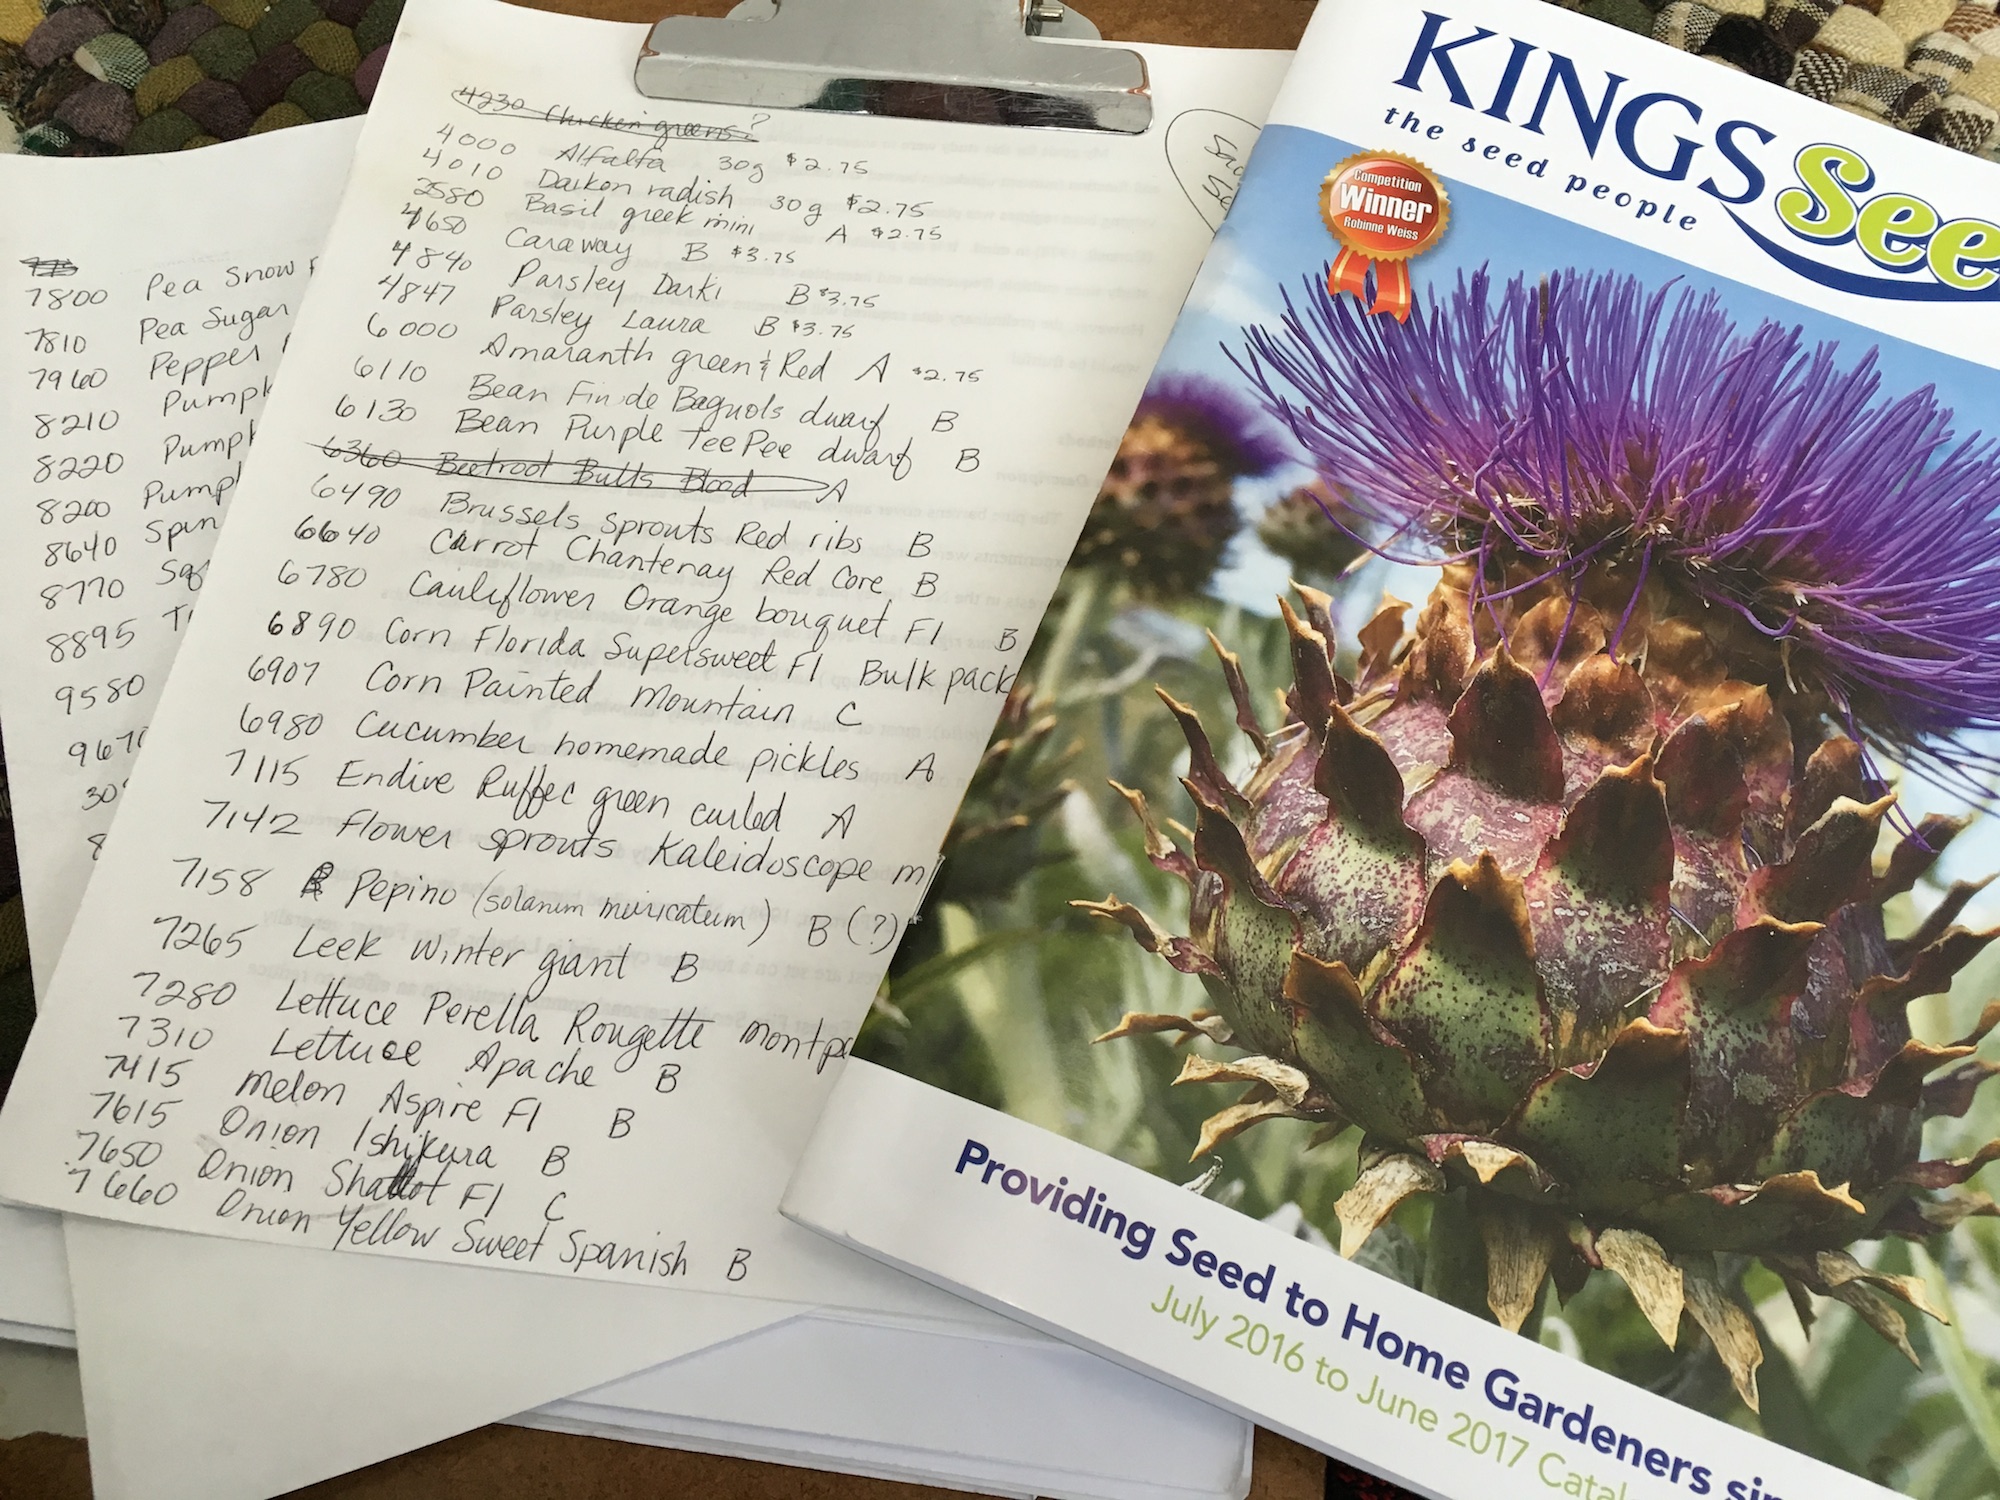 775
7800 Pea Snow
7810 Pea Sugar
7960 Pepper
8210 Pumpk
8220 Pumpk
8200 Pump
8640 Spin
8770
8895
9580
967
30
8
4230 Chicken greens?
4000 Alfalfa 30g $2.75
4010 Daikon radish 30g $2.75
2580 Basil greek mini A $2.75
4650 Caraway B $3.75
4840 Parsley Darki B $3.75
4847 Parsley Laura B $3.75
6000 Amaranth green & Red A $2.75
6110 Bean Fin de Bagnols dwarf B
6130 Bean Purple TeePee dwarf B
6360 Beetroot Bulls Blood A
6490 Brussels sprouts Red ribs B
6640 Carrot Chantenay Red Core B
6780 Cauliflower Orange bouquet F1 B
6890 Corn Florida Supersweet F1 Bulk pack
6907 Corn Painted Mountain C
6980 Cucumber homemade pickles A
7115 Endive Ruffec green curled A
7142 Flower sprouts Kaleidoscope m
7158 Pepino (solanum muricatum) B (?)
7265 Leek Winter giant B
7280 Lettuce Perella Rougette montp
7310 Lettuce Apache B
7415 Melon Aspire F1 B
7615 Onion Ishikura B
7650 Onion Shallot F1 C
7660 Onion Yellow Sweet Spanish B
KINGS See
the seed people
Competition
Winner
Robinne Weiss
Providing Seed to Home Gardeners sin
July 2016 to June 2017 Catal